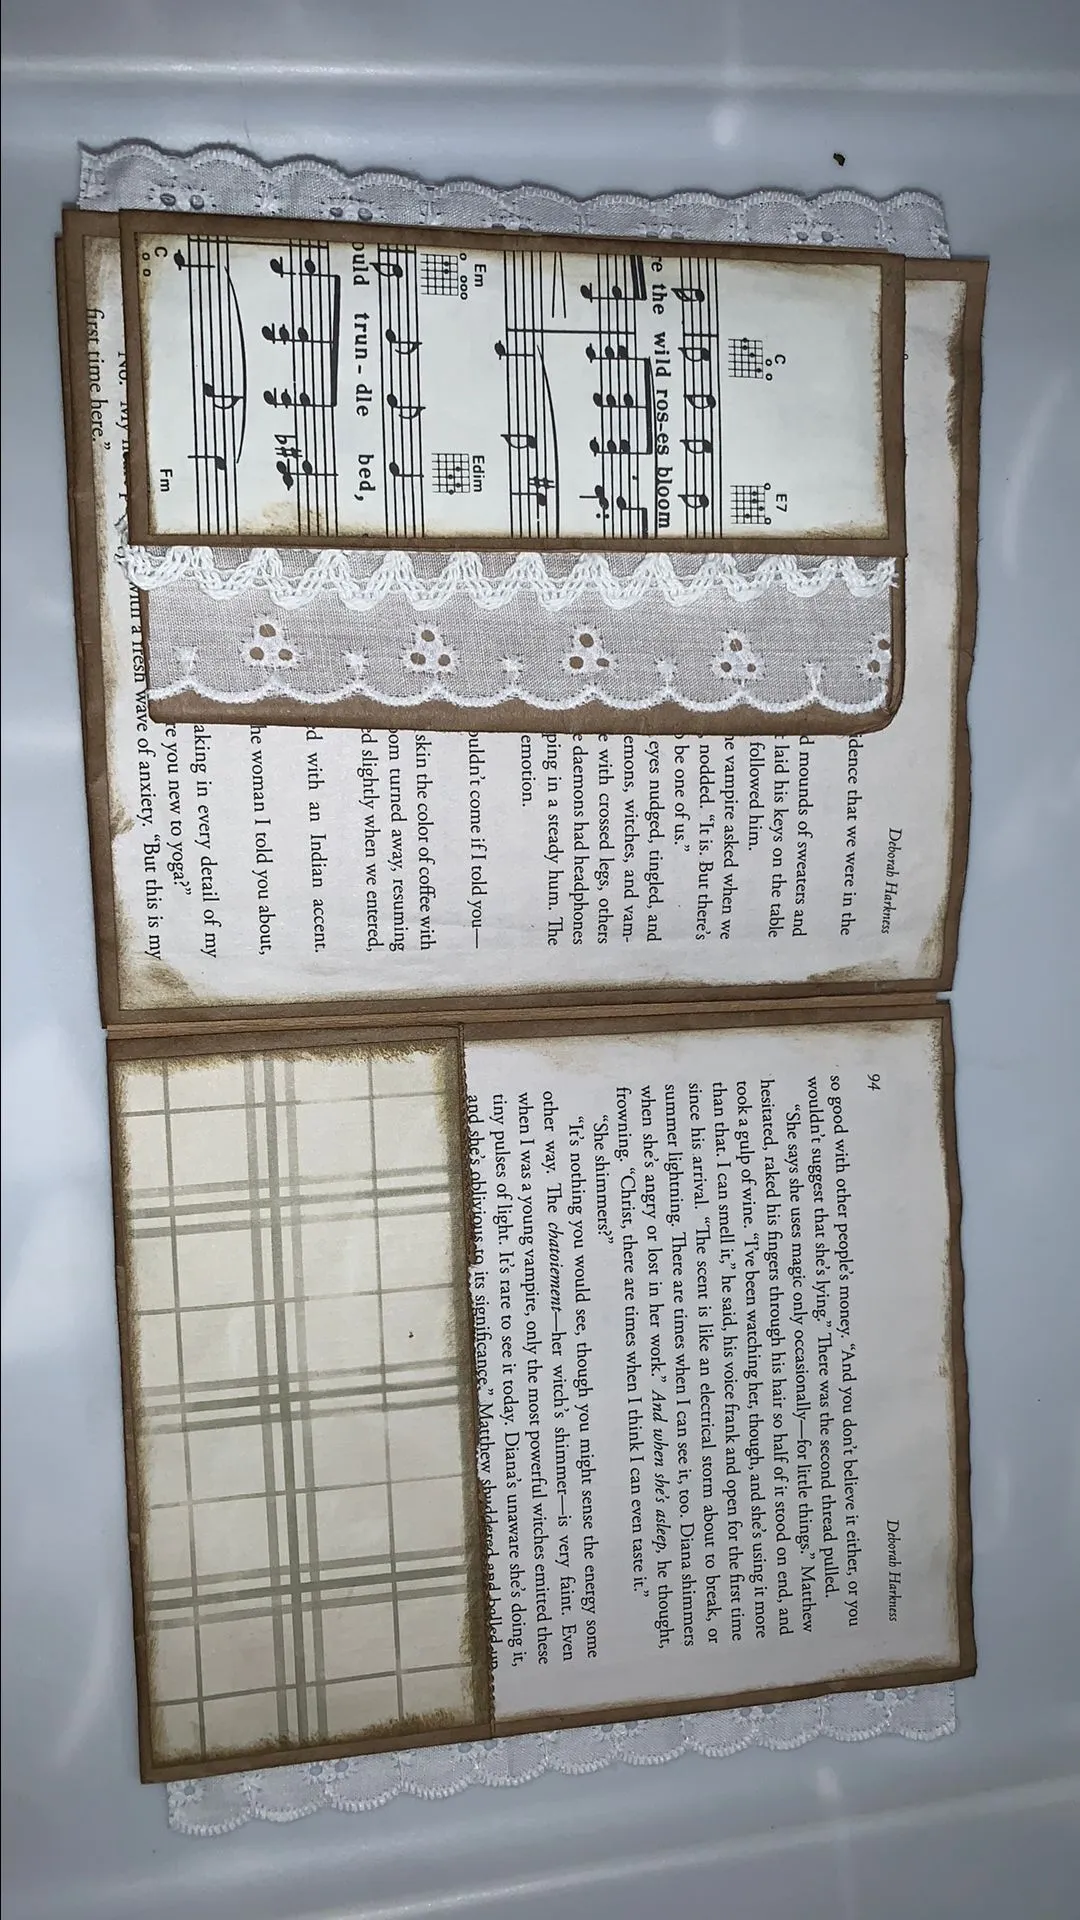 C E7
re the wild ros-es bloom
Em Edim
ould trun-dle bed,
C Fm
Deborah Harkness
idence that we were in the
d mounds of sweaters and
laid his keys on the table
followed him.
he vampire asked when we
nodded. “It is. But there’s
be one of us.”
eyes nudged, tingled, and
emons, witches, and vam-
e with crossed legs, others
e daemons had headphones
ping in a steady hum. The
emotion.
ouldn’t come if I told you—
skin the color of coffee with
oom turned away, resuming
ed slightly when we entered,
d with an Indian accent.
he woman I told you about,
aking in every detail of my
re you new to yoga?”
“No. My with a fresh wave of anxiety. “But this is my
first time here.”
94 Deborah Harkness
so good with other people’s money. “And you don’t believe it either, or you
wouldn’t suggest that she’s lying.” There was the second thread pulled.
“She says she uses magic only occasionally—for little things.” Matthew
hesitated, raked his fingers through his hair so half of it stood on end, and
took a gulp of wine. “I’ve been watching her, though, and she’s using it more
than that. I can smell it,” he said, his voice frank and open for the first time
since his arrival. “The scent is like an electrical storm about to break, or
summer lightning. There are times when I can see it, too. Diana shimmers
when she’s angry or lost in her work.” And when she’s asleep, he thought,
frowning. “Christ, there are times when I think I can even taste it.”
“She shimmers?”
“It’s nothing you would see, though you might sense the energy some
other way. The chatoiement—her witch’s shimmer—is very faint. Even
when I was a young vampire, only the most powerful witches emitted these
tiny pulses of light. It’s rare to see it today. Diana’s unaware she’s doing it,
and she’s oblivious to its significance.” Matthew shuddered and balled up